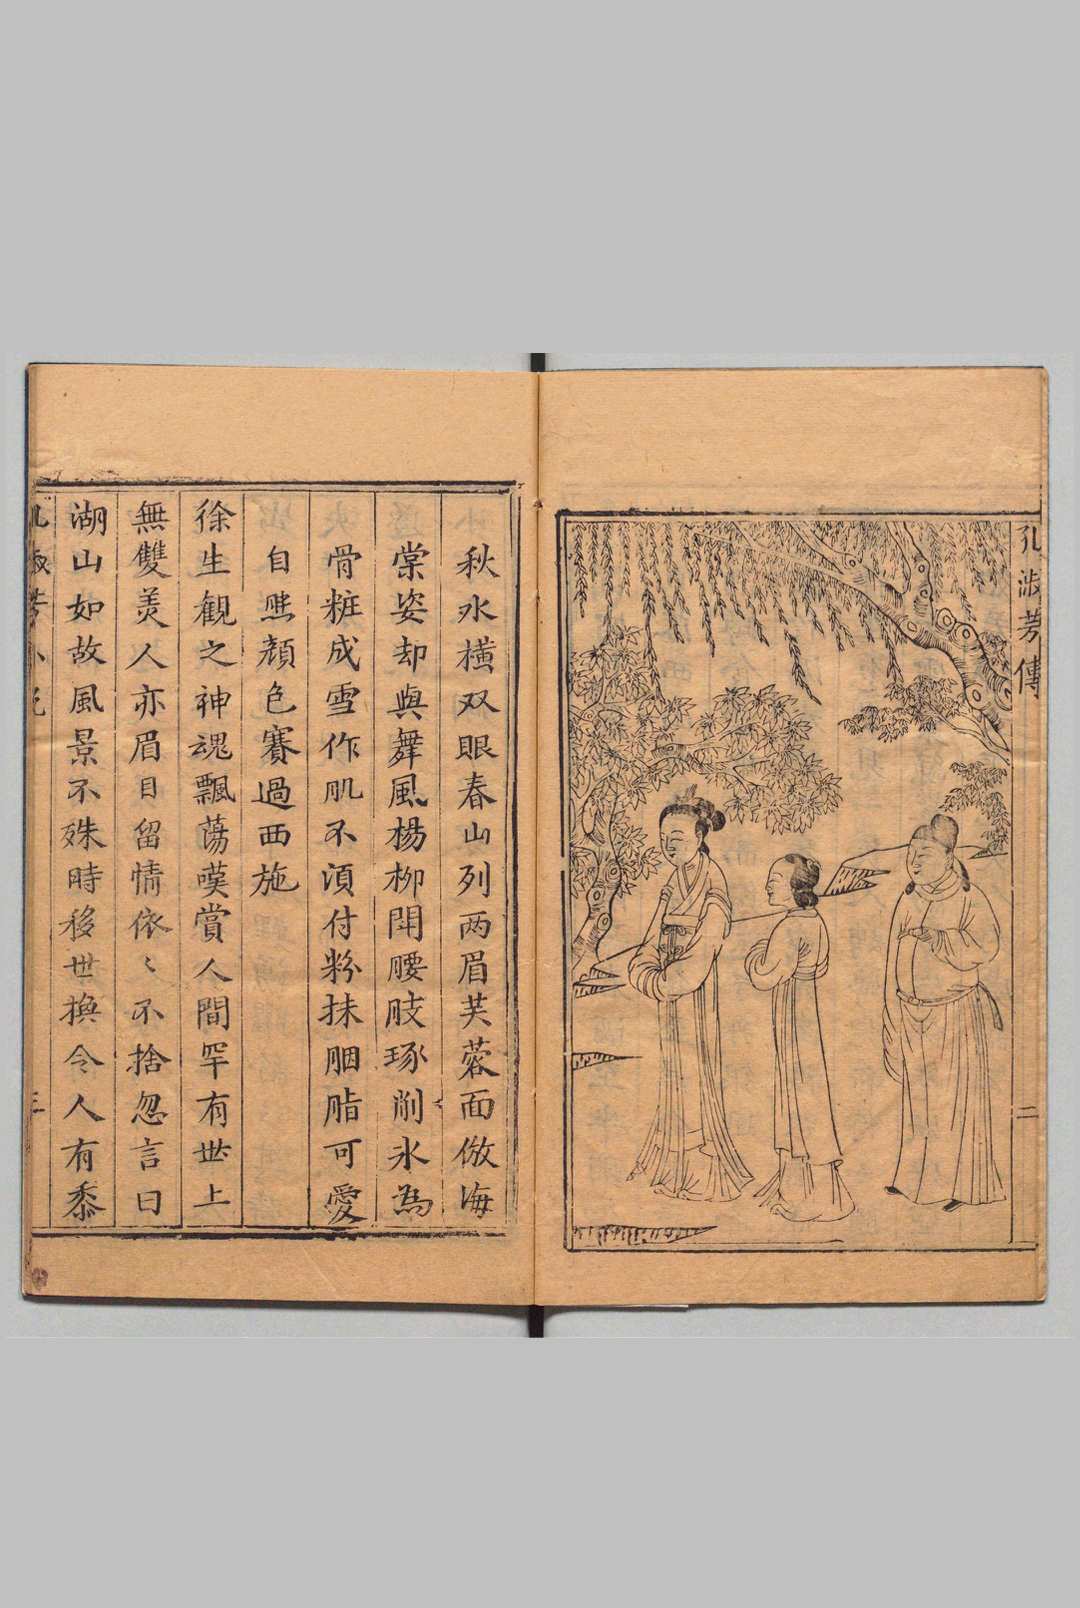 孔淑芳傳
二
秋水橫双眼春山列两眉芙蓉面倣海
棠姿却與舞風楊柳鬪腰肢琢削氷為
骨粧成雪作肌不湏付粉抹胭脂可愛
自然顔色賽過西施
徐生觀之神魂飄蕩嘆賞人間罕有世上
無雙羙人亦眉目留情依〻不捨忽言曰
湖山如故風景不殊時移世換令人有黍